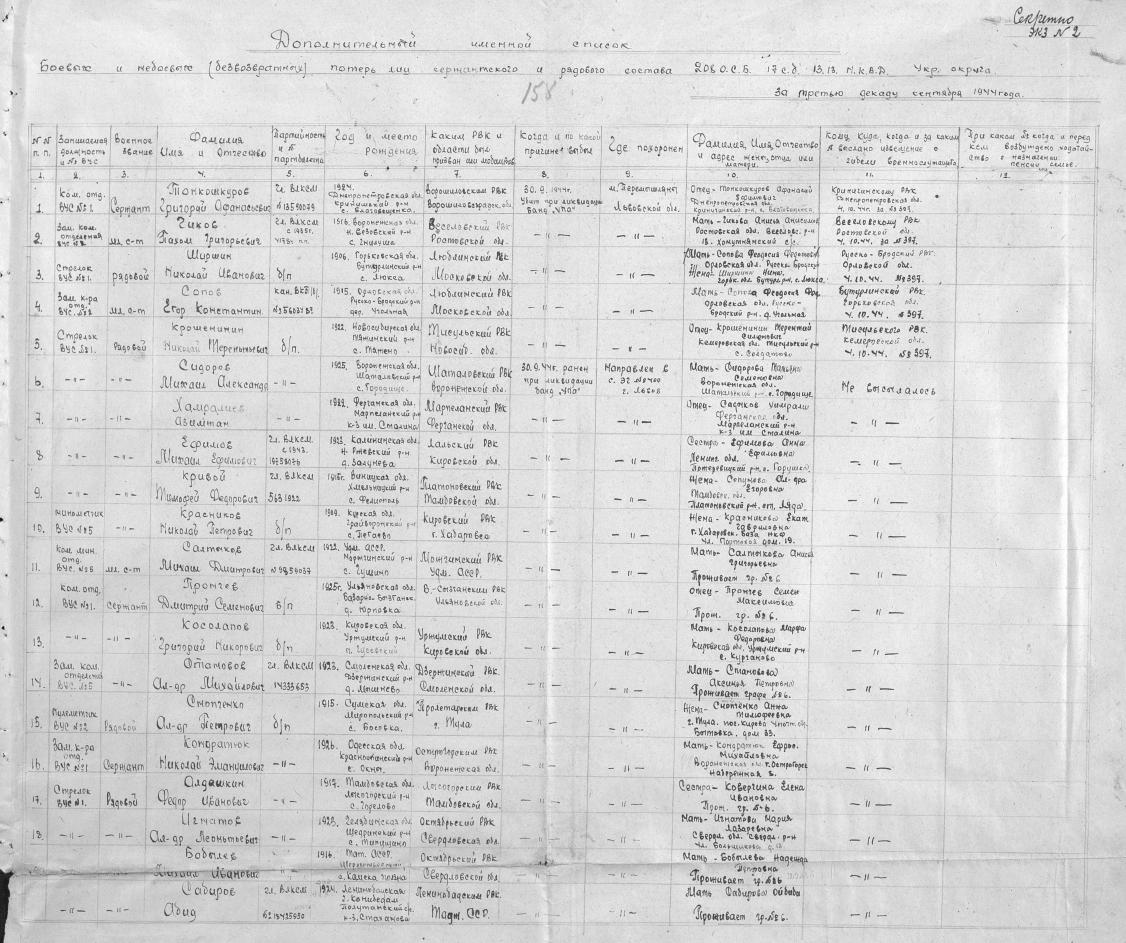 Секретно
экз № 2
Дополнительный именной список
Боевых и небоевых (безвозвратных) потерь лиц сержантского и рядового состава 208 О.С.Б. 17 с.д. В.В. Н.К.В.Д. Укр. округа
158
за третью декаду сентября 1944 года.
№№ п.п. Занимаемая должность и № ВУС Военное звание Фамилия Имя и Отчество Партийность и № партбилета Год и место рождения Каким РВК и области был призван или мобилизов. Когда и по какой причине выбыл Где похоронен Фамилия, Имя, Отчество и адрес жены, отца или матери Кому, куда, когда и за каким № выслано извещение о гибели военнослужащего При каком № когда и перед кем возбуждено ходатайство о назначении пенсии семье.
1. 2. 3. 4. 5. 6. 7. 8. 9. 10. 11. 12.
1. ком. отд. ВУС №1. Сержант Тонкошкуров Григорий Афанасьевич чл. ВЛКСМ №13590079 1924. Днепропетровская обл. Криничанский р-н с. Благовещенка Ворошиловским РВК Ворошиловградск. обл. 30.9.1944г. Убит при ликвидации банд "УПА" м. Перемышляны Львовской обл. Отец - Тонкошкуров Афанасий Днепропетровская обл. Криничанский р-н, с. Благовещенка Криничанскому РВК Днепропетровской обл. 4.10.44г. за №397.
2. Зам. ком. отделения ВУС №1. мл. с-т Чиков Пахом Григорьевич чл. ВЛКСМ с 1935г. 1916. Воронежская обл. с. Гнилуша Веселовский РВК Ростовской обл. — " — — " — Мать - Чикова Анисия Ростовская обл. Веселовс. р-н Веселовскому РВК Ростовской обл. 4.10.44 за №397.
3. Стрелок ВУС №1. рядовой Ширшин Николай Иванович б/п 1906. Горьковская обл. Бутурлинский р-н с. Люкса Люблинский РВК Московской обл. — " — — " — Мать - Сопова Феодосия Орловская обл. Русско-Бродский Жена - Ширшина Горьк. обл. Бутурл. р-н, с. Люкса Русско-Бродский РВК. Орловской обл. 4.10.44. №397.
4. Зам. к-ра отд. ВУС №2 мл. с-т Сопов Егор Константин. кан. ВКП(б) 1915. Орловская обл. Русско-Бродский р-н дер. Угольная Люблинский РВК Московской обл. — " — — " — Мать - Сопова Феодосия Орловская обл. Русско-Бродский р-н д. Угольная Бутурлинский РВК Горьковской обл. 4.10.44. №397.
5. Стрелок ВУС №1. Рядовой Крошенинин Николай Терентьевич б/п. 1922. Новосибирская обл. Тяжинский р-н с. Тяжено Тисульский РВК Новосиб. обл. — " — — " — Отец - Крошенинин Терентий Кемеровская обл. Тисульский р-н с. Солдатово Тисульского РВК. Кемеровской обл. 4.10.44. №397.
6. — " — — " — Сидоров Михаил Александр — " — 1925. Воронежская обл. Шаталовский р-н с. Городище. Шаталовский РВК Воронежской обл. 30.9.44г. ранен при ликвидации банд "УПА" Направлен в с. ЭГ №2400 г. Львов Мать - Сидорова Семеновна Воронежская обл. Шатальск. р-н. с. Городище. Не высылалось
7. — " — — " — Хамралиев Азимтан — " — 1922. Ферганская обл. Маргеланский р-н к-з им. Сталина Маргеланский РВК Ферганской обл. — " — — " — Отец - Садыков Умрали Ферганская обл. Маргеланский р-н к-з им. Сталина — " —
8 — " — — " — Ефимов Михаил Ефимович чл. ВЛКСМ с 1943. 1923. Калининская обл. Н. Ржевский р-н Лальский РВК Кировской обл. — " — — " — Сестра - Ефимова Анна Ефимовна Ленинг. обл. — " —
9. — " — — " — Кривой Тимофей Федорович чл. ВЛКСМ 5631922 1918г. Виницкая обл. Хмельницкий р-н с. Филиополь Платоновский РВК Тамбовской обл. — " — — " — Жена - Сопунова Ал-дра Егоровна Тамбовс. обл. Платоновский р-н, ст. Ляда. — " —
10. минометчик ВУС №5 — " — Красников Николай Петрович б/п 1909. Курская обл. Грайворонский р-н с. Пегаево Кировский РВК г. Хабаровск — " — — " — Жена - Красникова Екат. Гавриловна г. Хабаровск. база НКФ ул. Портовая дом. 19. — " —
11. ком. мин. отд. ВУС №5 мл. с-т Салтыков Михаил Дмитрович чл. ВЛКСМ 1922. Удм. АССР. с. Гущино Можгинский РВК Удм. АССР. — " — — " — Мать - Салтыкова Анисия Григорьевна Проживает гр. №6 — " —
12. ком. отд. ВУС №1. Сержант Прончев Дмитрий Семенович б/п 1925г. Ульяновская обл. д. Юрловка В.-Сызганский РВК Ульяновской обл. — " — — " — Отец - Прончев Семен Максимович Прож. гр. №6. — " —
13. — " — — " — Косолапов Григорий Никорович б/п 1923. Кировская обл. Уржумский р-н Уржумский РВК Кировской обл. — " — — " — Мать - Косолапова Марфа Федоровна Кировская обл. Уржумский р-н с. Курганово — " —
14. Зам. ком. отделен. ВУС. №5 — " — Стамовов Ал-др Михайлович чл. ВЛКСМ 14333653 1923. Смоленская обл. Дзержинский р-н д. Мышнево Дзержинский РВК. Смоленской обл. — " — — " — Мать - Стамовова Аксинья Петровна Проживает графе №6. — " —
15. Пулеметчик ВУС №2 Рядовой Снопченко Ал-др Петрович б/п 1915. Сумская обл. Миропольский р-н с. Босовка. Пролетарским РВК г. Тула — " — — " — Жена - Снопченко Анна Тимофеевна г. Тула. пос. Кирова дом 33. — " —
16. Зам. к-ра отд. ВУС №1 Сержант Кондратюк Николай Эмануилович — " — 1926. Одесская обл. Краснооктянский р-н с. Окны. Острогорским РВК Воронежская обл. — " — — " — Мать - Кондратюк Ефрос. Михайловна Воронежская обл. г. Острогорск Набережная — " —
17. Стрелок ВУС №1. Рядовой Олдашкин Федор Иванович — " — 1917. Тамбовская обл. Лысогорский р-н с. Горелово Лысогорским РВК Тамбовской обл. — " — — " — Сестра - Ковергина Елена Ивановна Прож. гр. №6. — " —
18. — " — — " — Игнатов Ал-др Леонтьевич — " — 1923. Челябинская обл. Шадринский р-н Октябрьский РВК Свердловской обл. — " — — " — Мать - Игнатова Мария Лазаревна Свердл. обл. Свердл. р-н — " —
Бобылев Михаил Иванович 1916. Тат. АССР. Октябрьский РВК Свердловской обл. — " — — " — Мать - Бобылева Надежда Петровна Проживает гр. №6 — " —
— " — — " — Сабиров Абид чл. ВЛКСМ 1924. Ленинобадская г. Конибадам к-з. Стаханова Ленинобадским РВК. Тадж. ССР. — " — — " — Мать Сабирова Ойбиби Проживает гр. №6. — " —